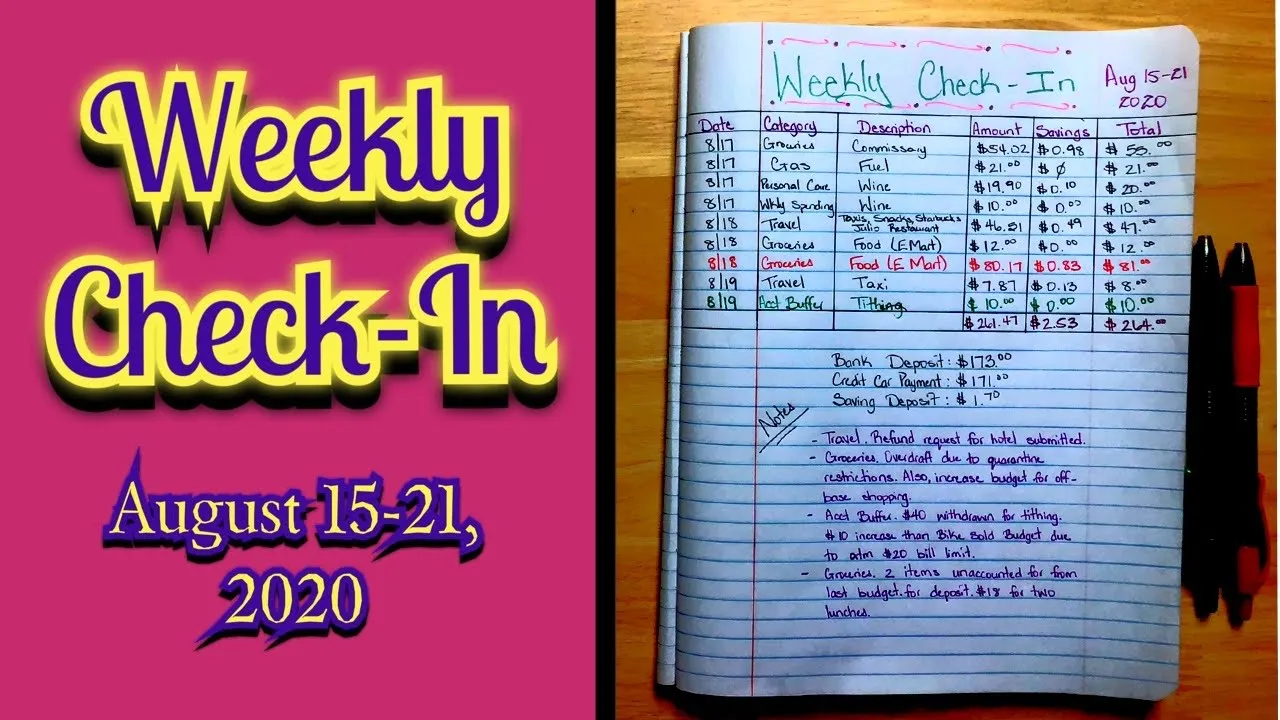 Weekly
Check-In
August 15-21,
2020
Weekly Check-In Aug 15-21
2020
Date Category Description Amount Savings Total
8/17 Groceries Commissary $54.02 $0.98 $55.00
8/17 Gas Fuel $21.00 $ø $21.00
8/17 Personal Care Wine $19.90 $0.10 $20.00
8/17 Wkly Spending Wine $10.00 $0.00 $10.00
8/18 Travel Taxis, Snacks, Starbucks
Julio Restaurant $46.51 $0.49 $47.00
8/18 Groceries Food (E.Mart) $12.00 $0.00 $12.00
8/18 Groceries Food (E Mart) $80.17 $0.83 $81.00
8/19 Travel Taxi $7.87 $0.13 $8.00
8/19 Acct Buffer Tithing $10.00 $0.00 $10.00
$261.47 $2.53 $264.00
Bank Deposit: $173.00
Credit Car Payment: $171.00
Saving Deposit: $1.70
Notes
- Travel. Refund request for hotel submitted.
- Groceries. Overdraft due to quarantine
restrictions. Also, increase budget for off-
base shopping.
- Acct Buffer. $40 withdrawn for tithing.
$10 increase than Bike Sold Budget due
to atm $20 bill limit.
- Groceries. 2 items unaccounted for from
last budget. for deposit. $18 for two
lunches.